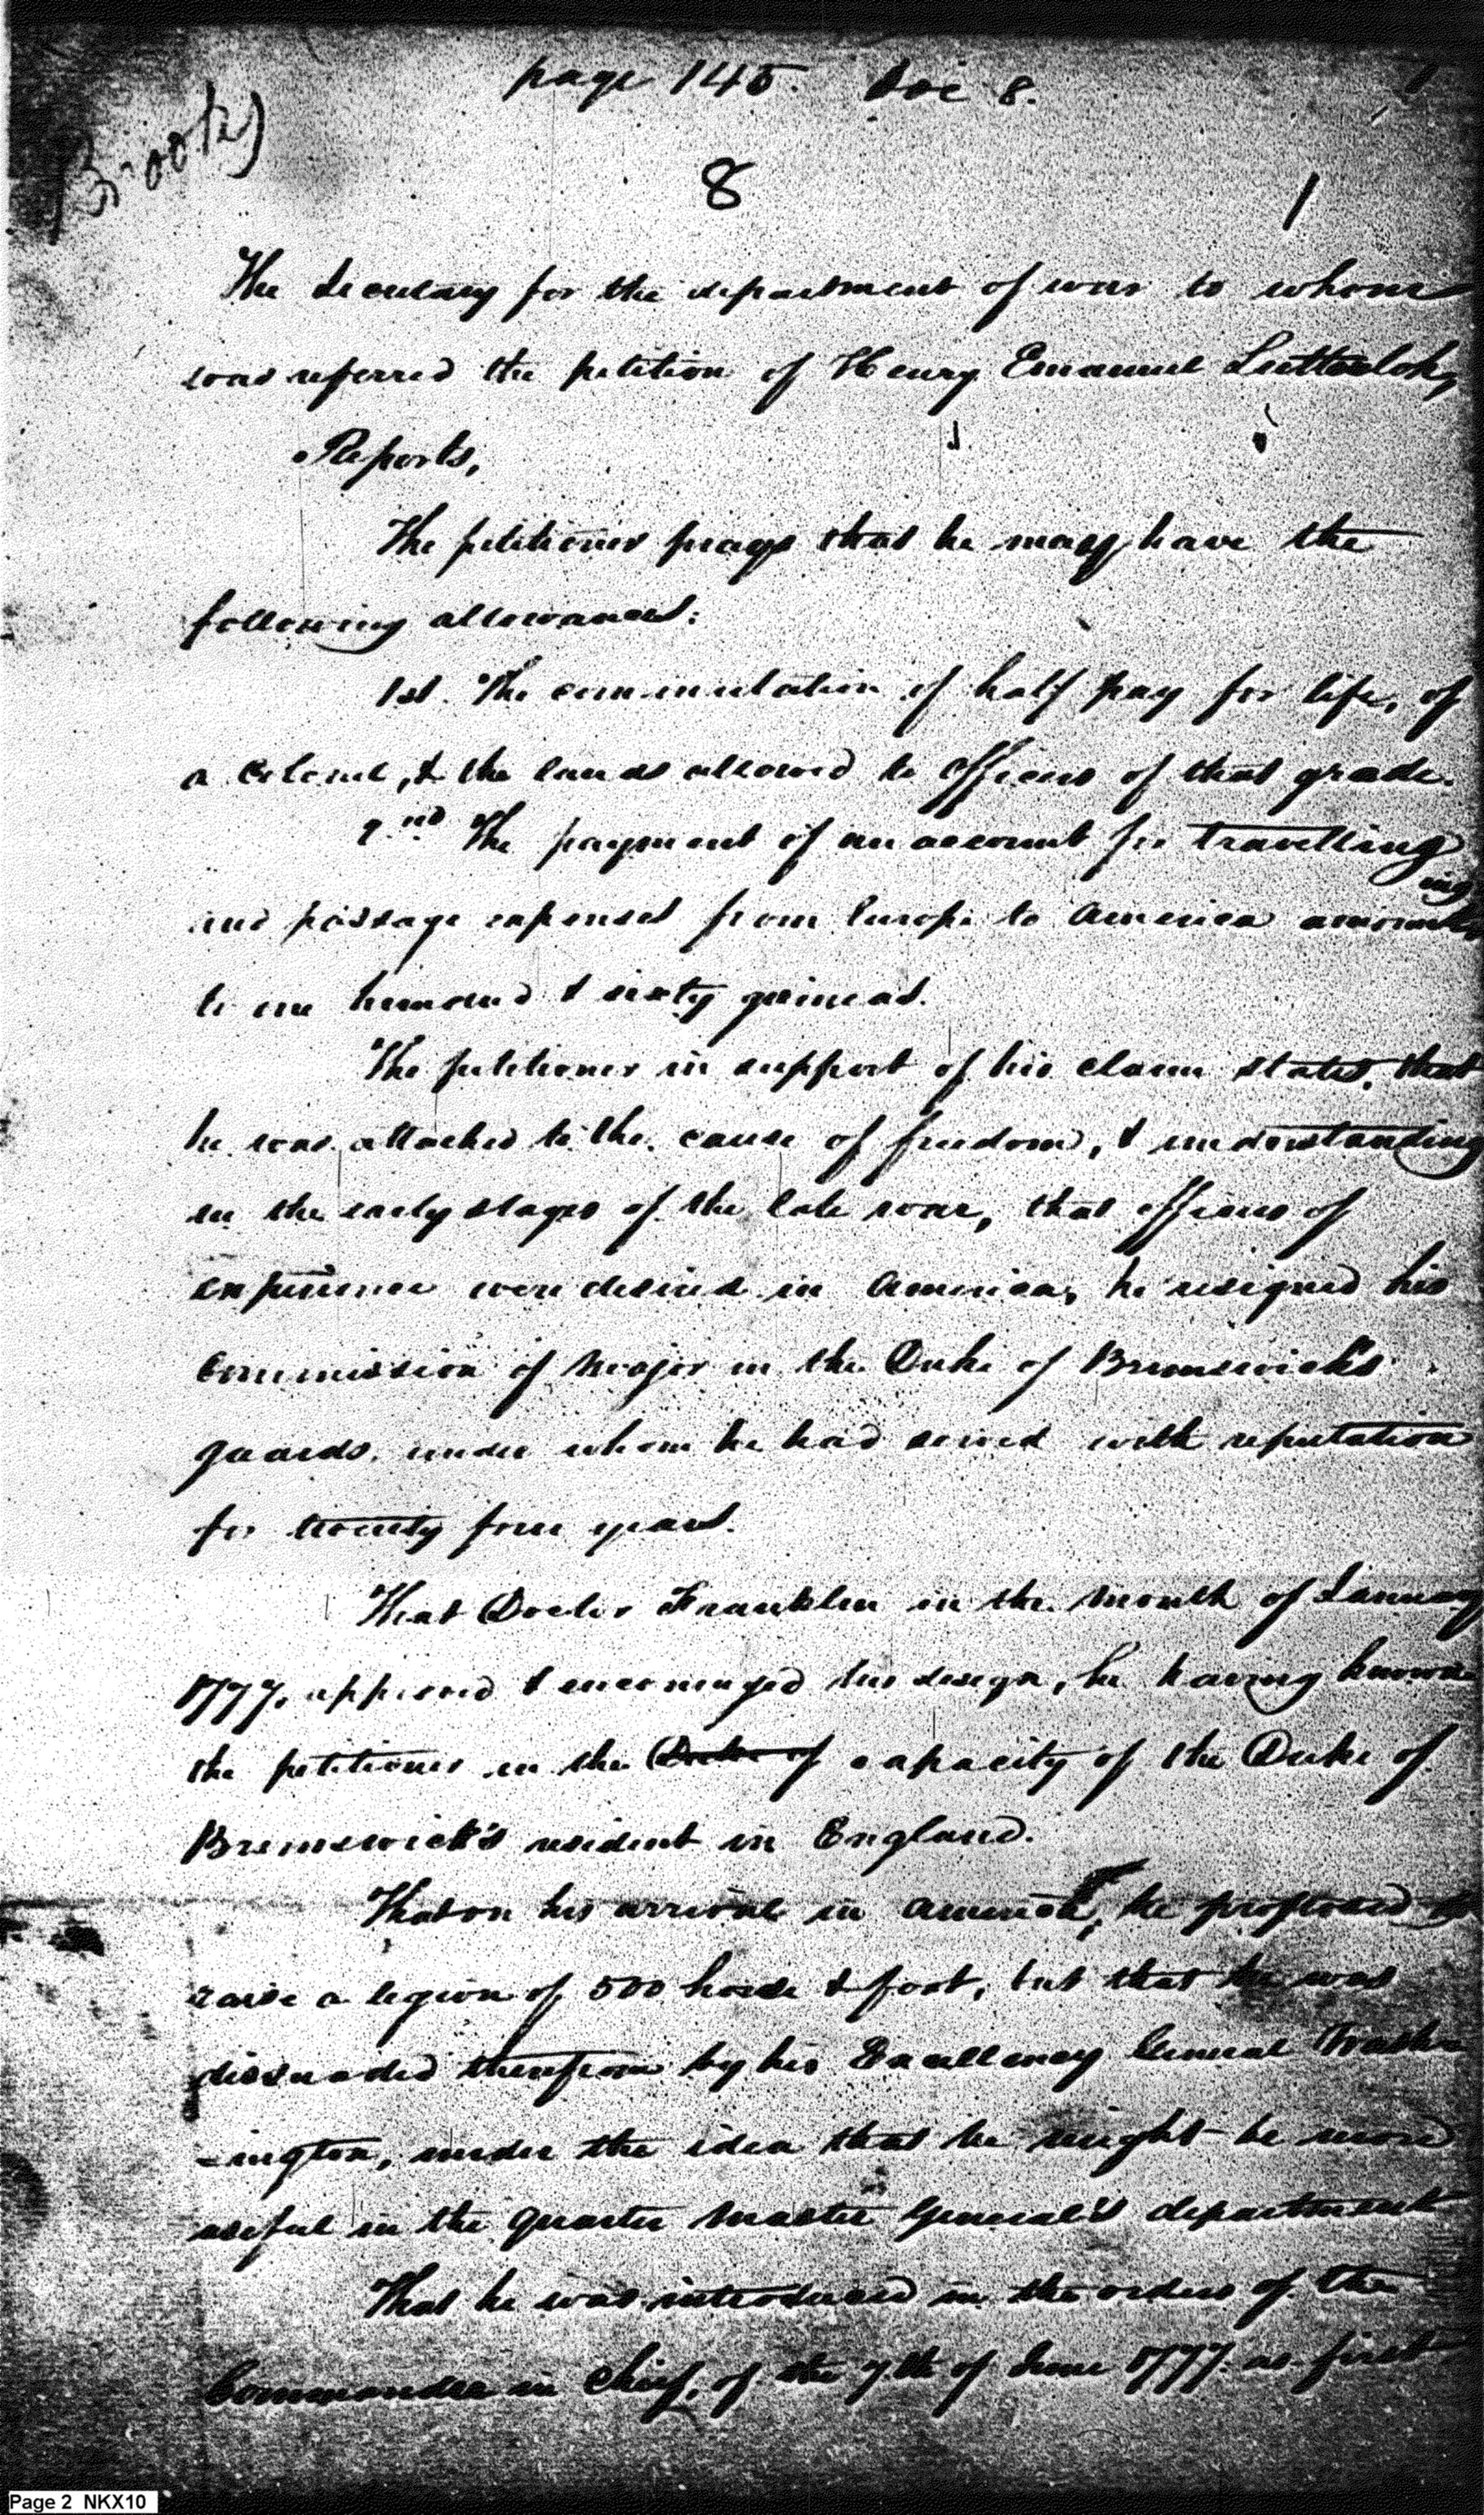 page 145. Doc 8.
Brook)
8
1
The Secretary for the department of war to whom
was referred the petition of Henry Emanuel Lutterloh,
Reports,
The petitioner prays that he may have the
following allowances:
1st. The commutation of half pay for life, of
a Colonel, & the lands allowed to officers of that grade.
2.nd The payment of an account for travelling
and passage expenses from Europe to America amounting
to one hundred & sixty guineas.
The petitioner in support of his claim states, that
he was attached to the cause of freedom, & understanding
in the early stages of the late war, that officers of
experience were desired in America, he resigned his
Commission of Major in the Duke of Brunswick's
guards, under whom he had served with reputation
for twenty four years.
That Doctor Franklin in the month of January
1777, approved & encouraged his design, he having known
the petitioner in the Duke of capacity of the Duke of
Brunswick's resident in England.
That on his arrival in America, he proposed to
raise a legion of 500 horse & foot, but that he was
dissuaded therefrom by his Excellency General Wash
-ington, under the idea that he might be more
useful in the quarter Master General's department
That he was introduced in the orders of the
Commander in Chief, of the 7th of June 1777 as first
Page 2 NKX10